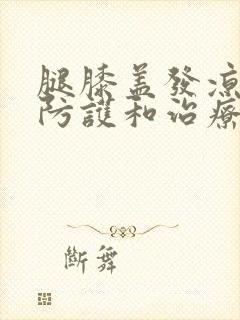 腿膝盖發凉
防護和治療
斷舞